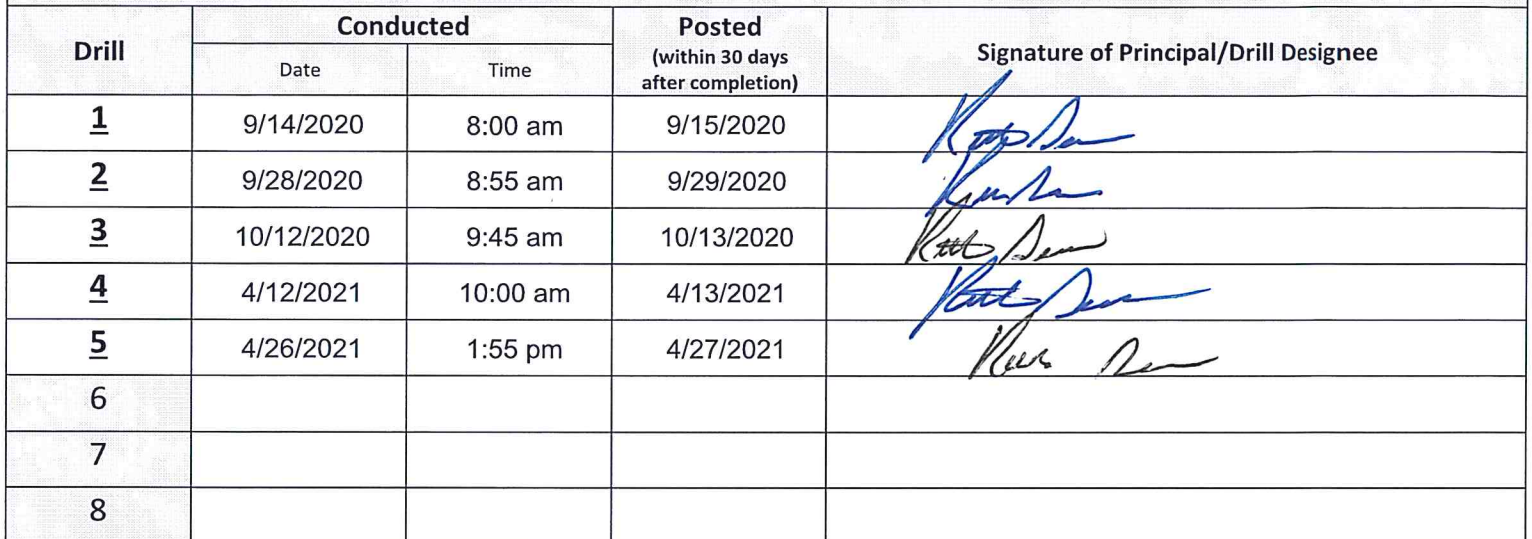 Drill Conducted Posted (within 30 days after completion) Signature of Principal/Drill Designee
Date Time
1 9/14/2020 8:00 am 9/15/2020
2 9/28/2020 8:55 am 9/29/2020
3 10/12/2020 9:45 am 10/13/2020
4 4/12/2021 10:00 am 4/13/2021
5 4/26/2021 1:55 pm 4/27/2021
6
7
8